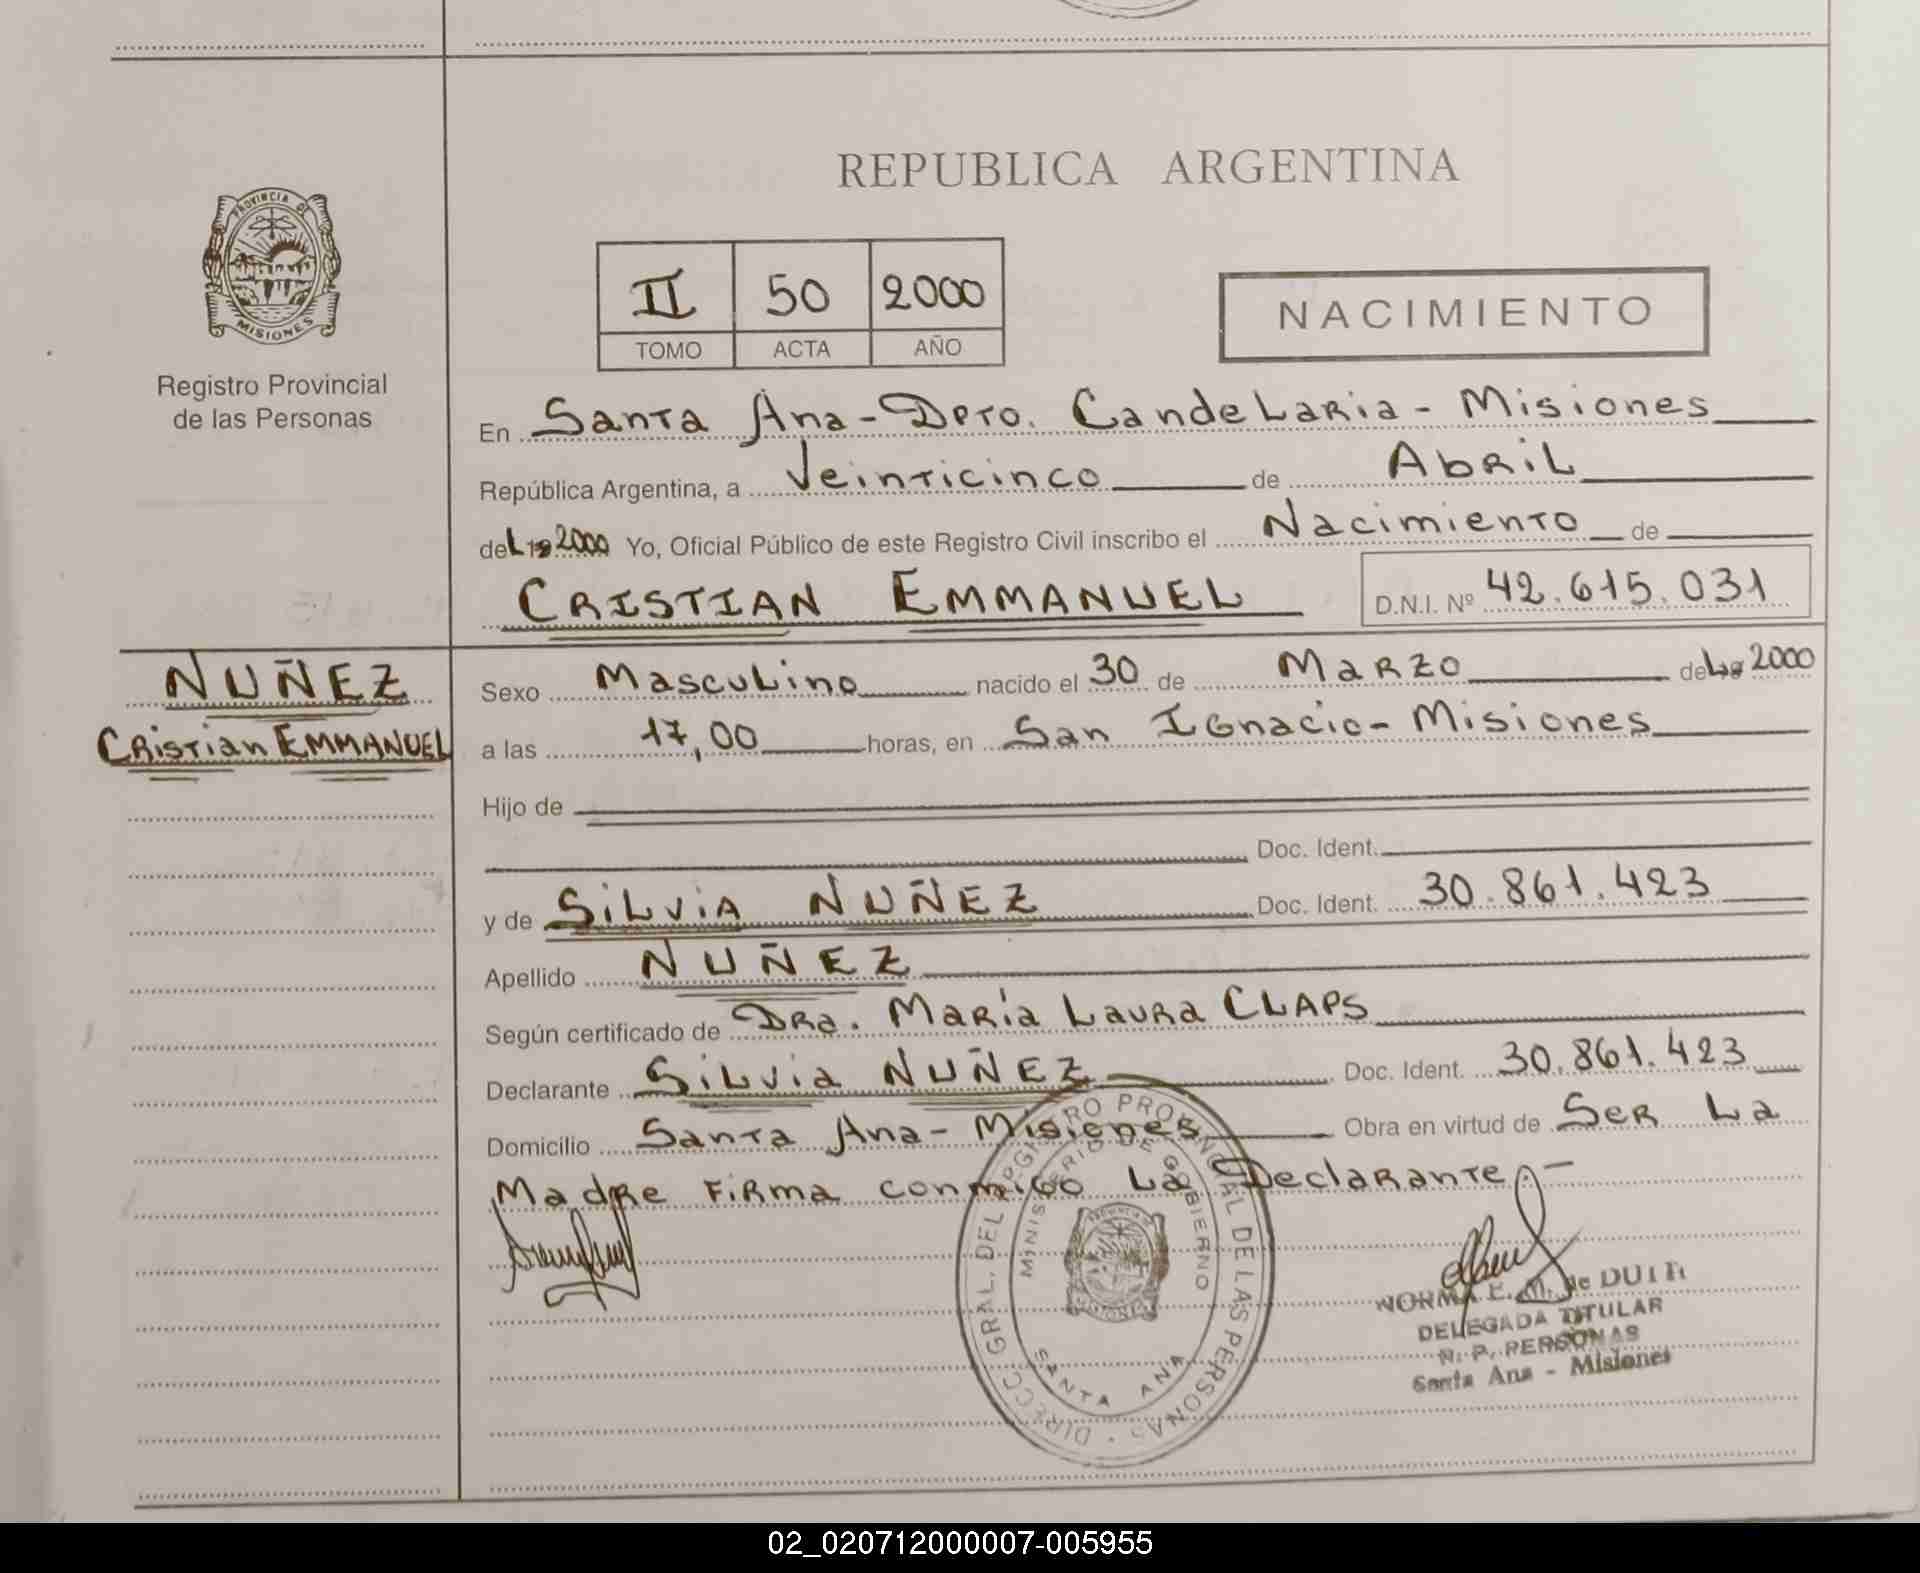 REPUBLICA ARGENTINA
PROVINCIA DE
MISIONES
Registro Provincial
de las Personas
II 50 2000
TOMO ACTA AÑO
NACIMIENTO
En Santa Ana - Dpto. Candelaria - Misiones
República Argentina, a Veinticinco de Abril
del 19 2000 Yo, Oficial Público de este Registro Civil inscribo el Nacimiento de
CRISTIAN EMMANUEL D.N.I. Nº 42.615.031
NUÑEZ
Cristian EMMANUEL
Sexo Masculino nacido el 30 de Marzo del 19 2000
a las 17,00 horas, en San Ignacio - Misiones
Hijo de
Doc. Ident.
y de Silvia NUÑEZ Doc. Ident. 30.861.423
Apellido NUÑEZ
Según certificado de Dra. María Laura CLAPS
Declarante Silvia NUÑEZ Doc. Ident. 30.861.423
Domicilio Santa Ana - Misiones Obra en virtud de Ser La
Madre Firma conmigo La Declarante.-
DIRECC. GRAL. DEL REGISTRO PROVINCIAL DE LAS PERSONAS
MINISTERIO DE GOBIERNO
SANTA ANA
NORMA E. M. de
DELEGADA TITULAR
R. P. PERSONAS
Santa Ana - Misiones
02_020712000007-005955